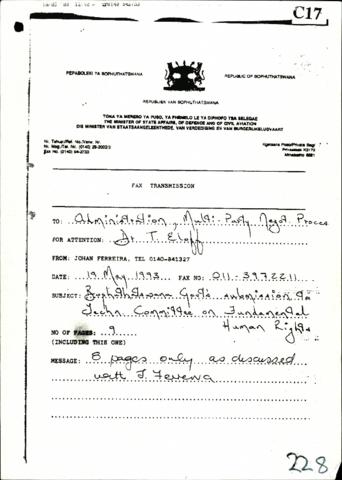 C17
REPABOLEKI YA BOPHUTHATSWANA
REPUBLIC OF BOPHUTHATSWANA
REPUBLIEK VAN BOPHUTHATSWANA
TONA YA MERERO YA PUSO, YA PHEMELO LE YA DIPHOFO TSA SELEGAE
THE MINISTER OF STATE AFFAIRS, OF DEFENCE AND OF CIVIL AVIATION
DIE MINISTER VAN STAATSAANGELEENTHEDE, VAN VERDEDIGING EN VAN BURGERLUGVAART
Mmabatho 8681
FAX TRANSMISSION
TO: Administration, Multi-Party Negot. Process
FOR ATTENTION: Dr. T. Eloff
FROM: JOHAN FERREIRA, TEL 0140-841327
DATE: 19 May 1993. FAX NO: 011-3972211
SUBJECT: Bophuthatswana Govt's submission to
Techn. Committee on Fundamental
Human Rights
NO OF PAGES: 9
(INCLUDING THIS ONE)
MESSAGE: 8 pages only as discussed
with J. Ferreira
228